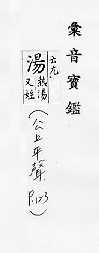 彙音寶鑑
六九
湯 熱湯 又姓
(公上平聲 P.123
)